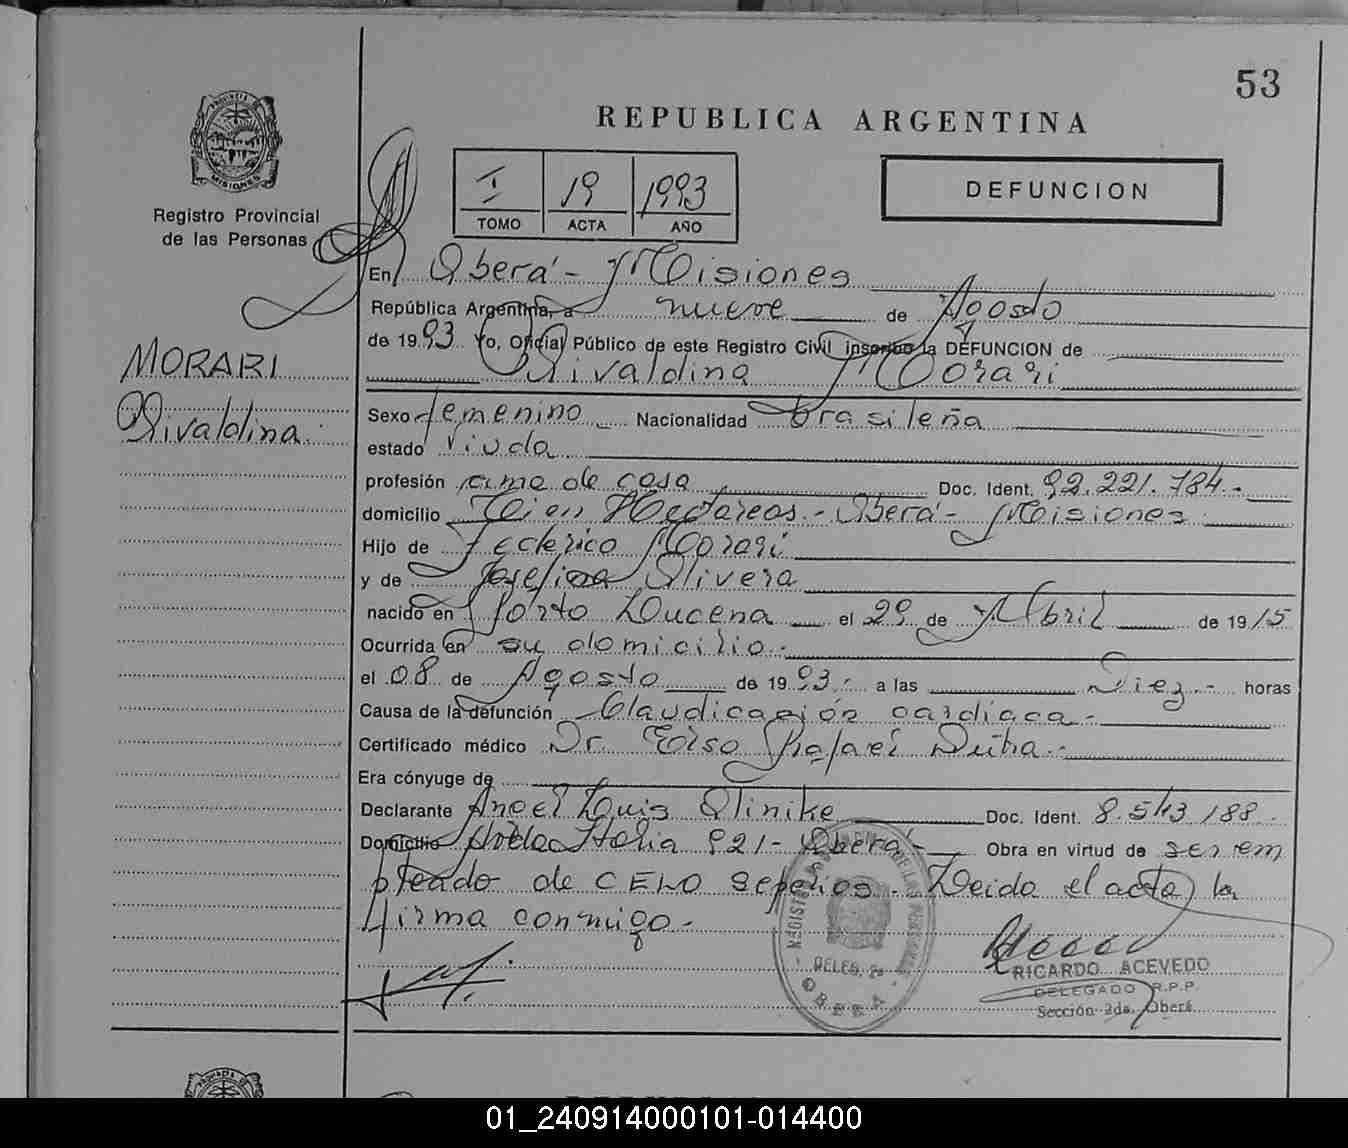 53
REPUBLICA ARGENTINA
I 19 1993
TOMO ACTA AÑO
DEFUNCION
PROVINCIA DE
MISIONES
Registro Provincial
de las Personas
MORARI
Rivaldina
En Oberá - Misiones
República Argentina, a nueve de Agosto
de 1993 Yo, Oficial Público de este Registro Civil inscribo la DEFUNCION de
Rivaldina Morari
Sexo femenino Nacionalidad brasileña
estado Viuda
profesión ama de casa Doc. Ident. 92.221.784.-
domicilio Cien Hectáreas.- Oberá - Misiones
Hijo de Federico Morari
y de Josefina Olivera
nacido en Porto Lucena el 29 de Abril de 1915
Ocurrida en su domicilio.-
el 08 de Agosto de 1993.- a las Diez.- horas
Causa de la defunción Claudicación cardíaca -
Certificado médico Dr. Rafael
Era cónyuge de
Declarante Angel Luis Doc. Ident. 8.543.188.
Domicilio Avda Italia 921 - Oberá - Obra en virtud de ser em
pleado de CELO Sepelios. Leida el acta la
firma conmigo.-
DELEG. 2a
OBERA
RICARDO ACEVEDO
DELEGADO R.P.P.
Sección 2da. Oberá
01_240914000101-014400